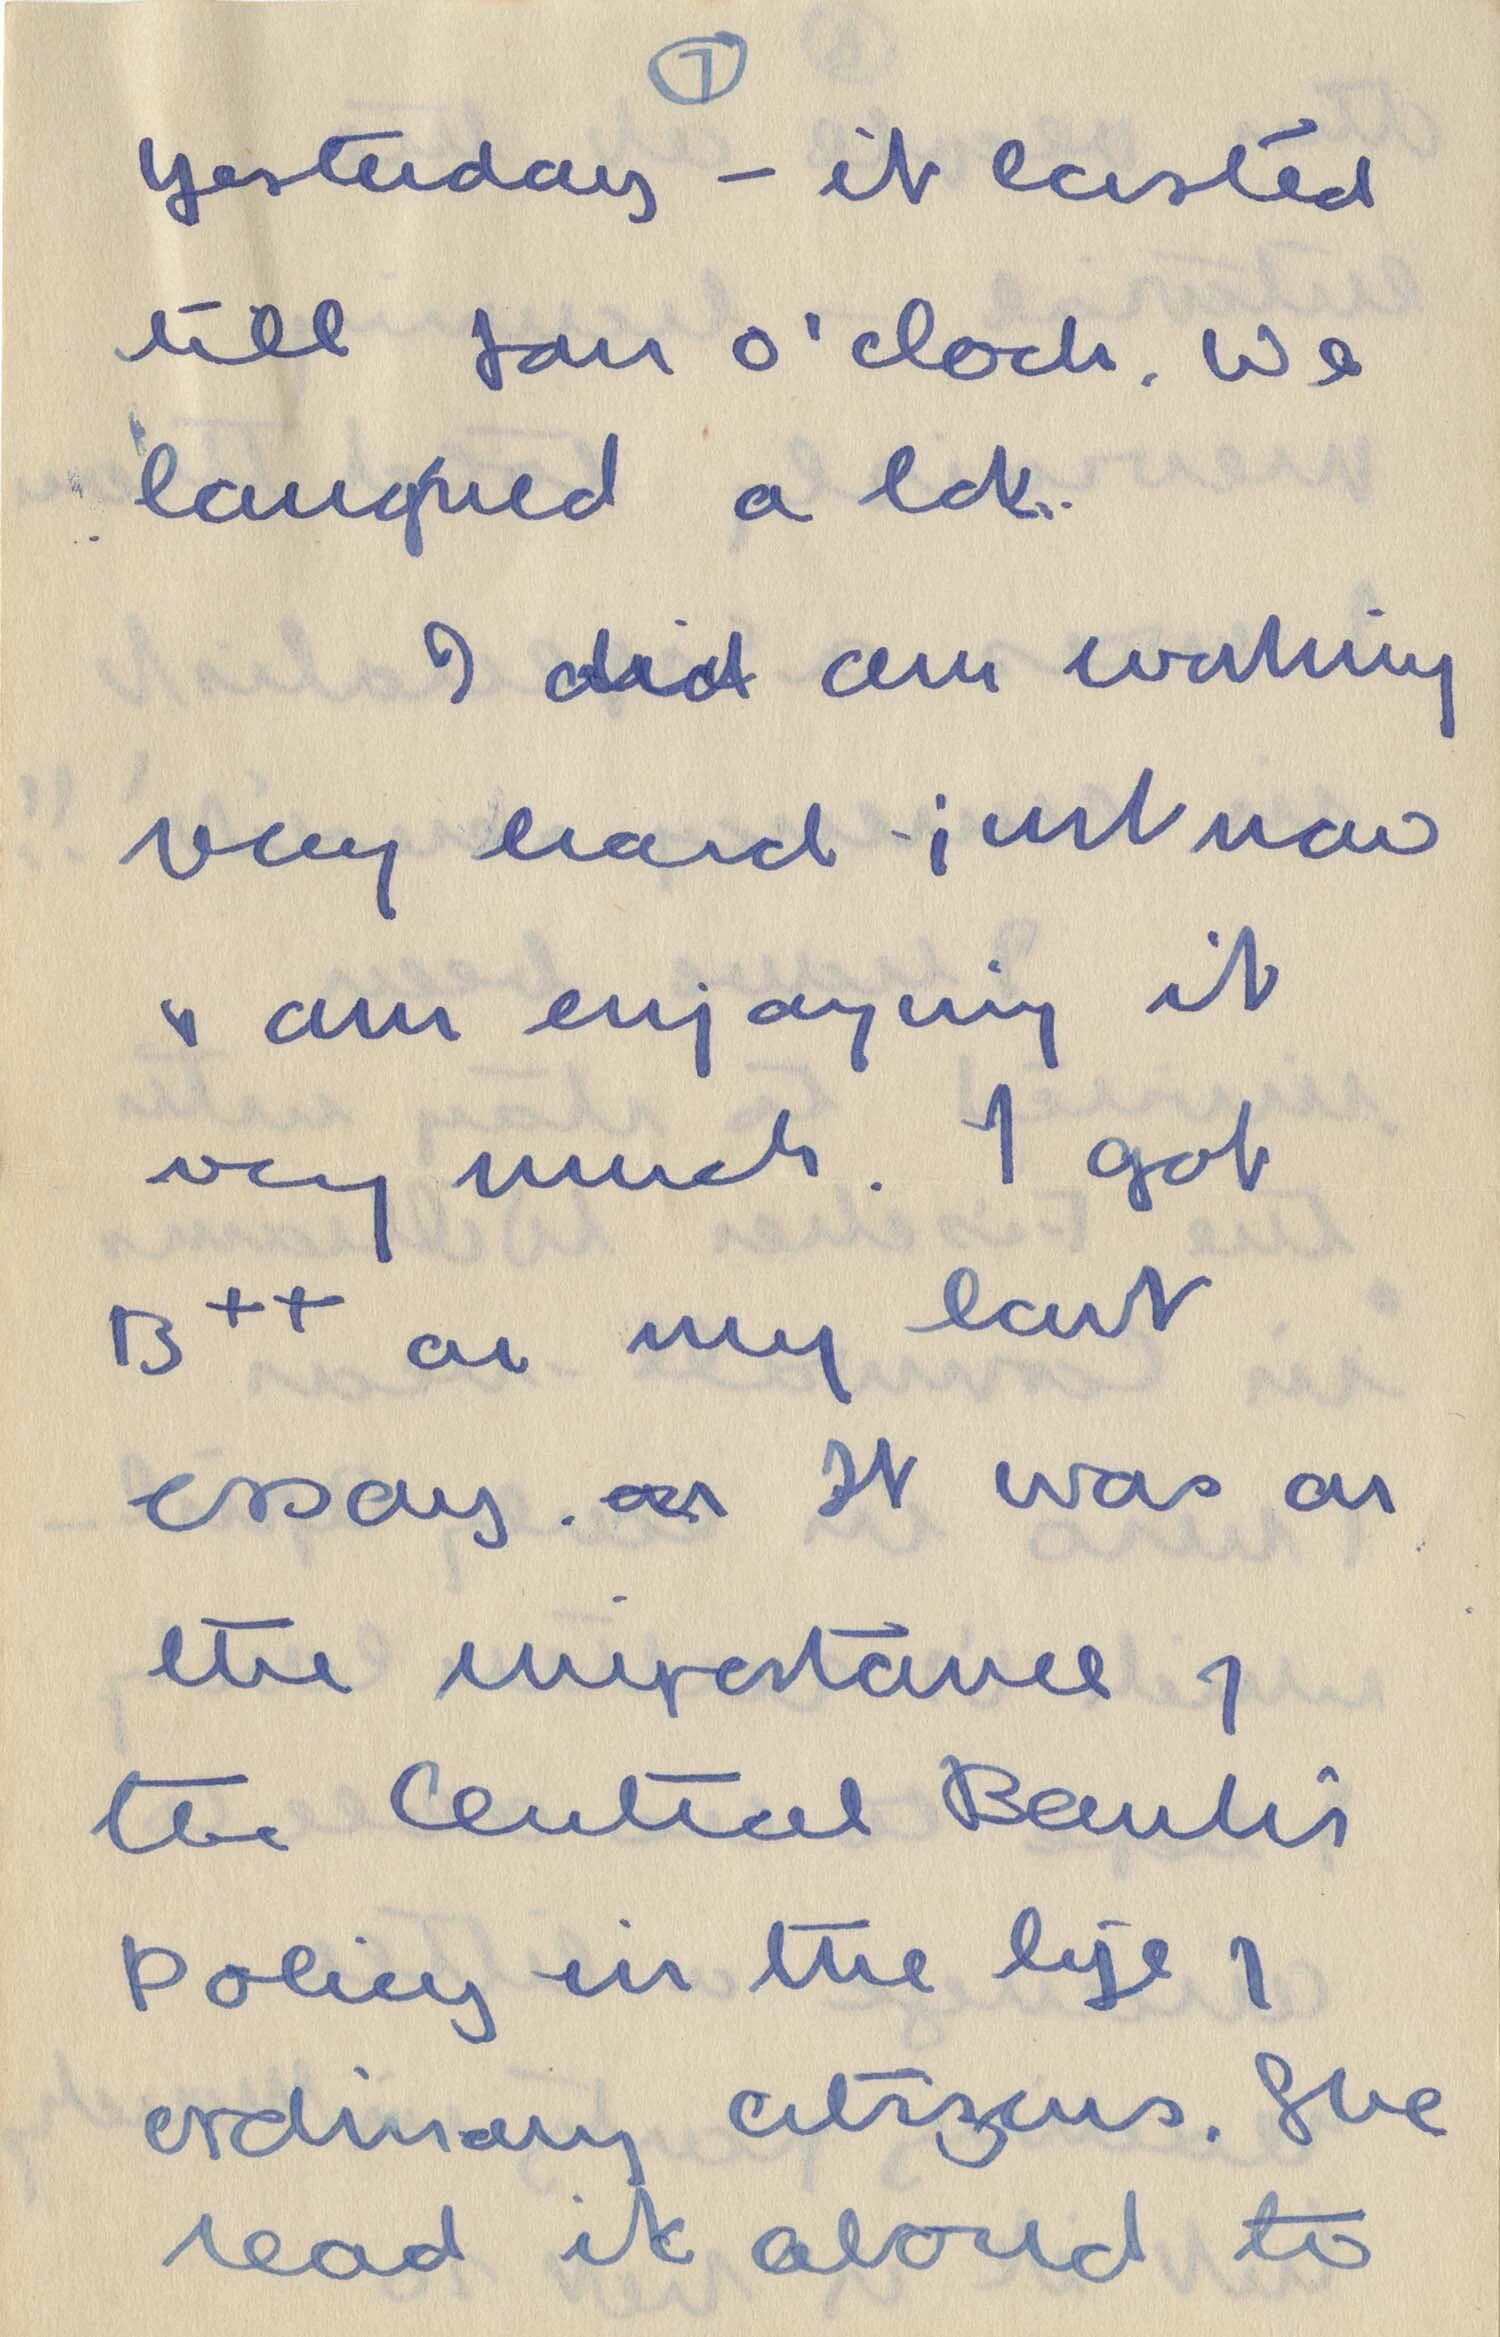 7
yesterday - it lasted
till four o'clock. We
laughed a lot.
I did am working
very hard just now
& am enjoying it
very much. I got
B++ on my last
essay. on It was on
the importance of
the Central Bank's
Policy in the life of
ordinary citizens. She
read it aloud to